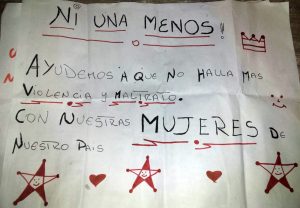 NI UNA MENOS!
AYUDEMOS A QUE NO HALLA MAS
VIOLENCIA Y MALTRATO.
CON NUESTRAS MUJERES DE
NUESTRO PAIS